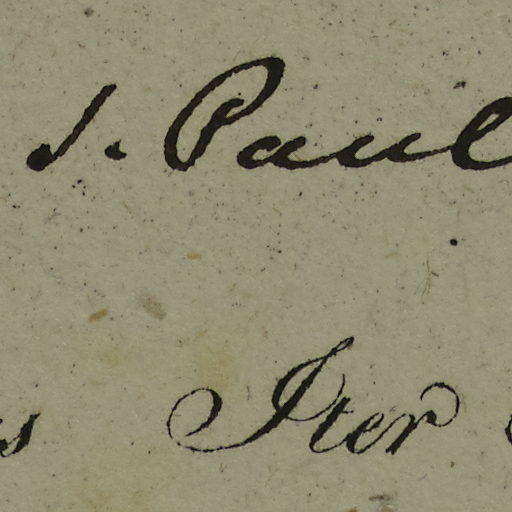 s. Paul
s Iter